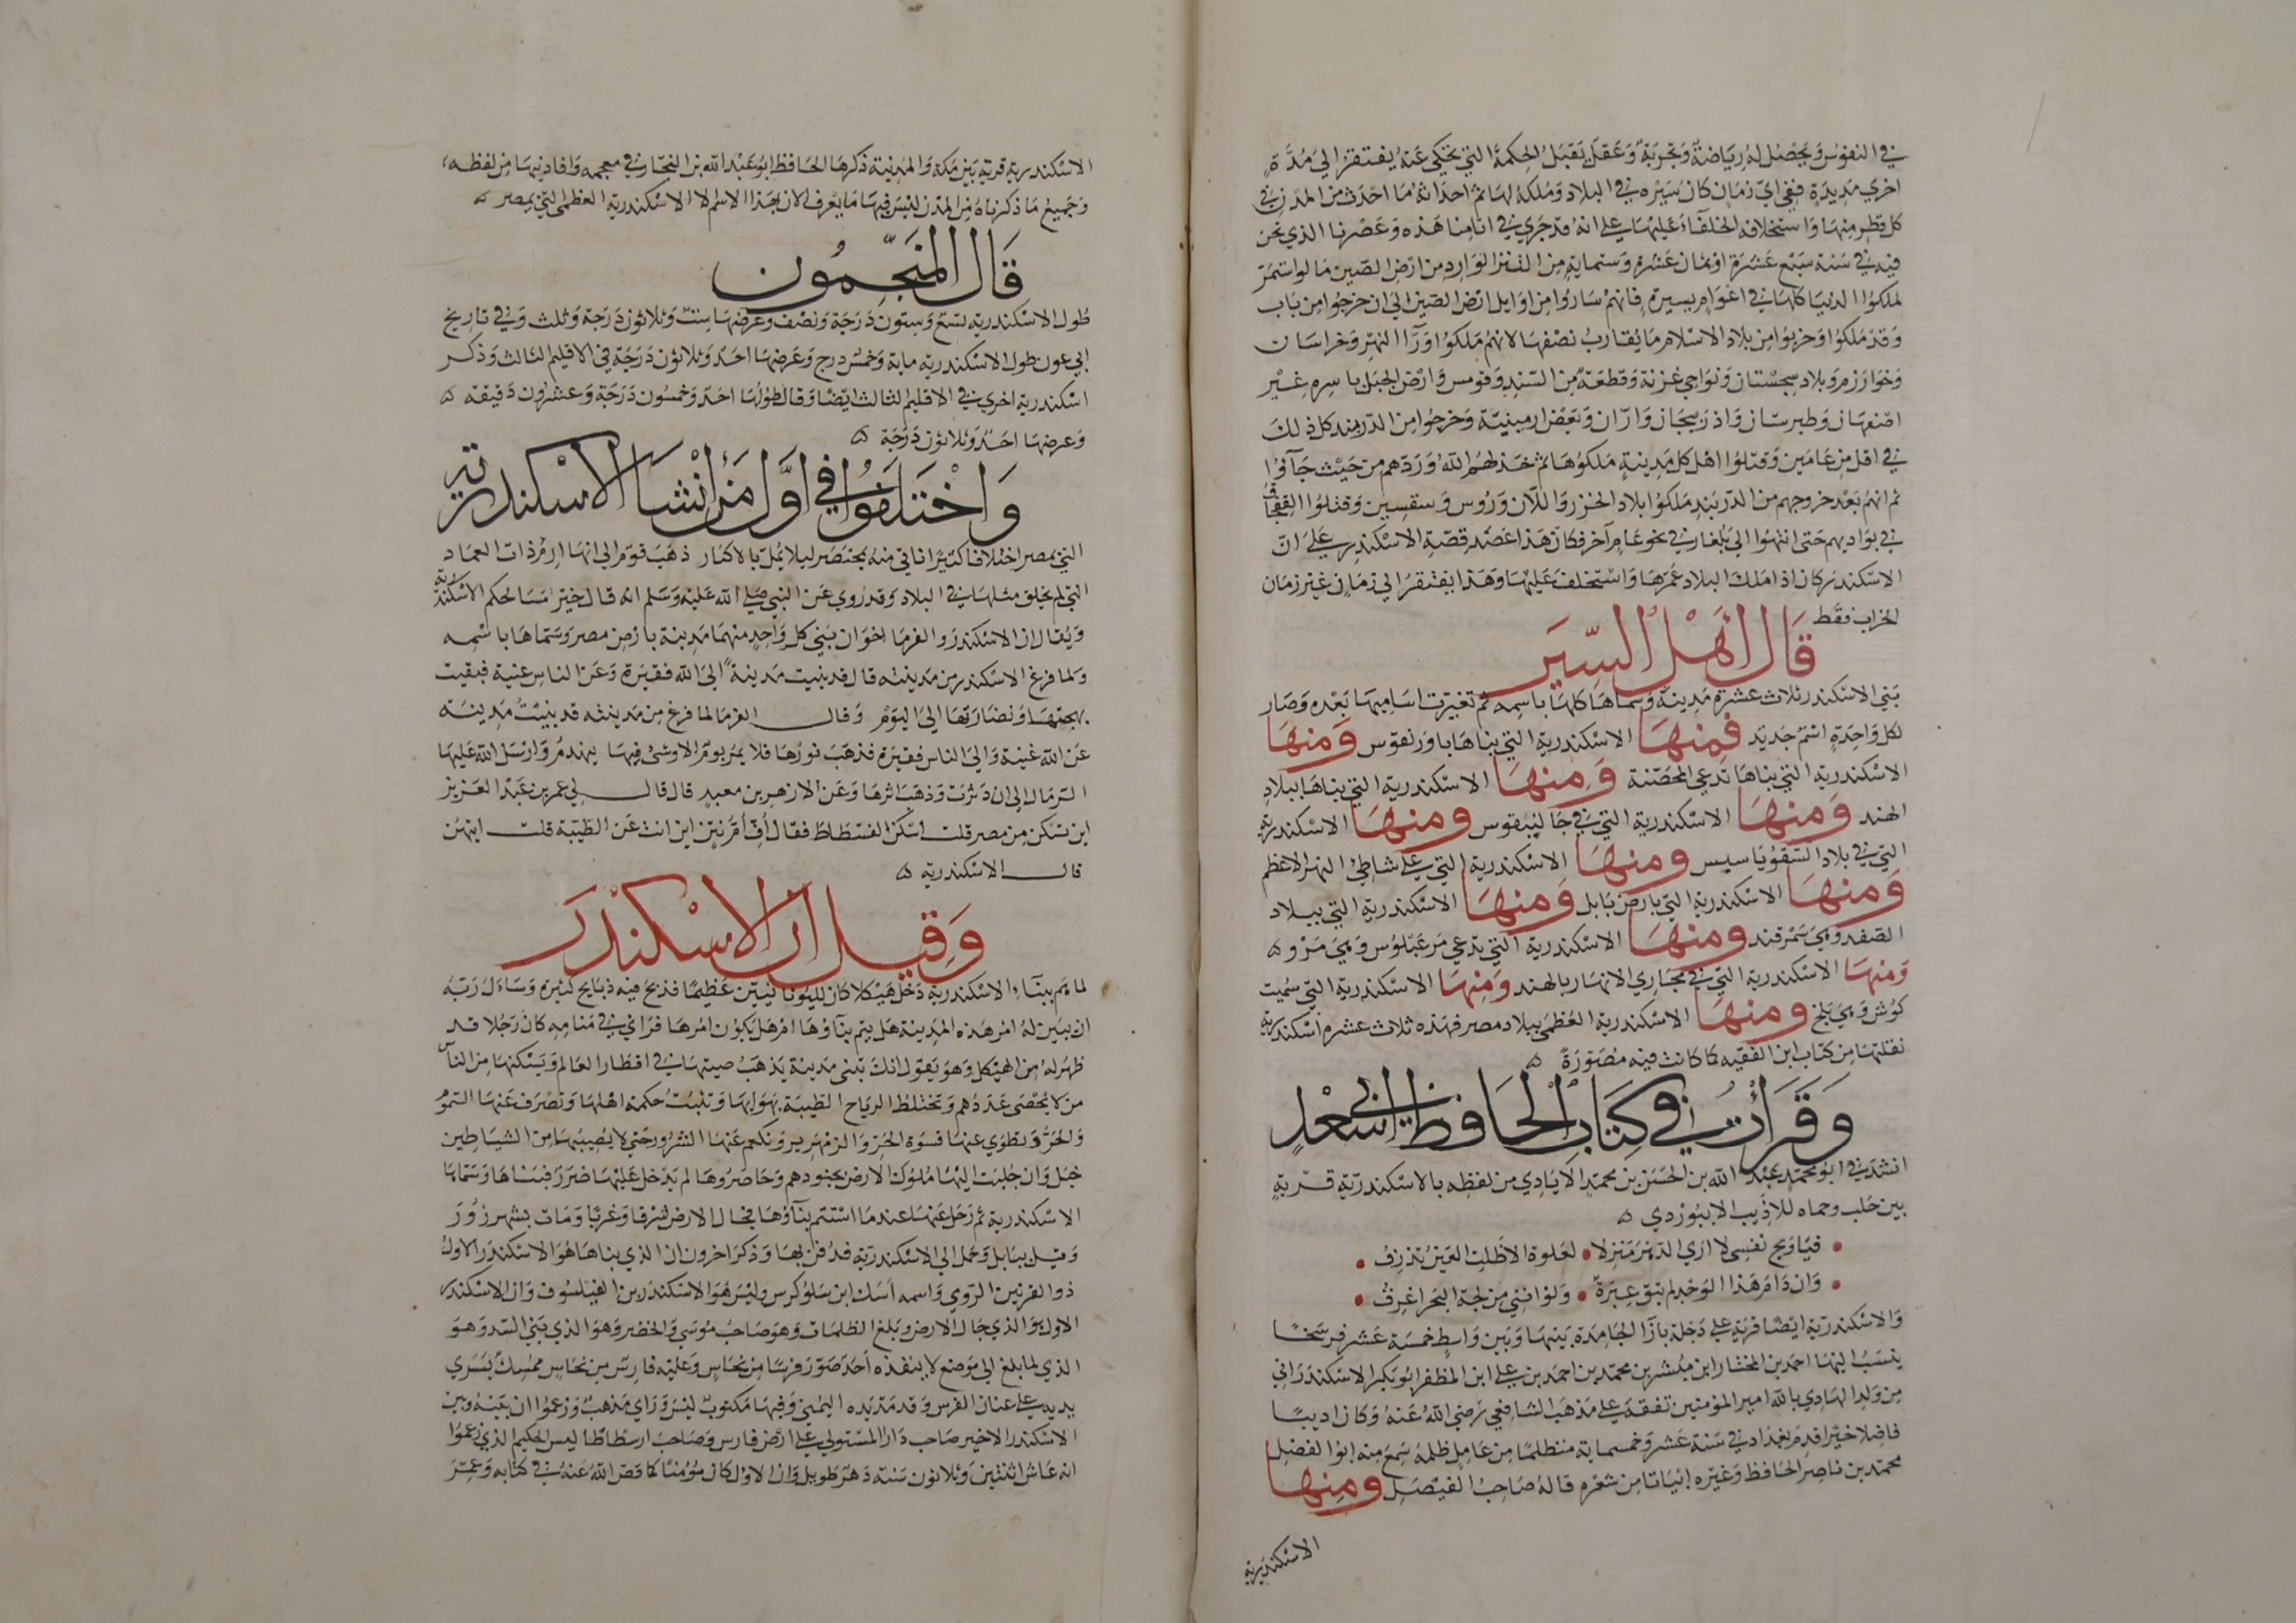 في النفوس ويحصل له رياضة وتجربة وعقل يقبل الحكمة التي تحكى عنه يفتقر الي مدة
اخري مديدة ففي اي زمان كان سيره في البلاد وملكه لها ثم احداثه ما احدث من المدن في
كل قطر منها واستخلافه الخلفاء عليها علي انه قد جري في ايامنا هذه وعصرنا الذي نحن
فيه في سنة سبع عشرة او ثمان عشرة وستماية من التتر الوارد من ارض الصين ما لو استمر
لملكوا الدنيا كلها في اعوام يسيرة فانهم ساروا من اوايل ارض الصين الي ان خرجوا من باب
وقد ملكوا وخربوا من بلاد الاسلام ما يقارب نصفها لانهم ملكوا ورآ النهر وخراسان
وخوارزم وبلاد سجستان ونواجي غزنة وقطعة من السند وقومس وارض الجبل باسره غير
اصفهان وطبرستان واذربيجان واران وبعض ارمينية وخرجوا من الدربند كل ذلك
في اقل من عامين وقتلوا اهل كل مدينة ملكوها ثم خذلهم الله وردهم من حيث جآوا
ثم انهم بعد خروجهم من الدربند ملكوا بلاد الخزر واللان وروس وسقسين وقتلوا القفجاق
في بواديهم حتى انتهوا الي بلغار في نحو عام آخر فكان هذا عضد قصة الاسكندر علي ان
الاسكندر كان اذا ملك البلاد عمرها واستخلف عليها وهذا يفتقر الي زمان غير زمان
الخراب فقط
قال أهل السير
بني الاسكندر ثلاث عشرة مدينة وسماها كلها باسمه ثم تغيرت اساميها بعده وصار
لكل واحدة اسم جديد فمنها الاسكندرية التي بناها باورنقوس ومنها
الاسكندرية التي بناها تدعي المحصنة ومنها الاسكندرية التي بناها ببلاد
الهند ومنها الاسكندرية التي في جالينقوس ومنها الاسكندرية
التي في بلاد السقوياسيس ومنها الاسكندرية التي علي شاطئ النهر الاعظم
ومنها الاسكندرية التي بارض بابل ومنها الاسكندرية التي ببلاد
الصغد وهي سمرقند ومنها الاسكندرية التي تدعي مرغبلوس وهي مرو ه
ومنها الاسكندرية التي في مجاري الانهار بالهند ومنها الاسكندرية التي سميت
كوش وهي بلخ ومنها الاسكندرية العظمي ببلاد مصر فهذه ثلاث عشرة اسكندرية
نقلتها من كتاب ابن الفقيه كما كانت فيه مصورة ه
وقرأت في كتاب الحافظ ابي سعد
انشدني ابو محمد عبد الله بن الحسن بن محمد الايادي من لفظه بالاسكندرية قرية
بين حلب وحماه للاديب الابيوردي ه
فيا ويح نفسي لا اري الدهر منزلا لعلوة الا ظلت العين تذرف
وان دام هذا الوجد لم تبق عبرة ولو انني من لجة البحر اغرف
والاسكندرية ايضا قرية علي دجلة بازا الجامدة بينها وبين واسط خمسة عشر فرسخا
ينسب اليها احمد بن المختار ابن مبشر بن محمد بن احمد بن علي ابن المظفر ابو بكر الاسكندراني
من ولد الهادي بالله امير المؤمنين تفقه علي مذهب الشافعي رضي الله عنه وكان اديبا
فاضلا خيرا قدم بغداد في سنة عشر وخمسماية متظلما من عامل ظلمه سمع منه ابو الفضل
محمد بن ناصر الحافظ وغيره ابياتا من شعره قاله صاحب الفيصل ومنها
الاسكندرية
الاسكندرية قرية بين مكة والمدينة ذكرها الحافظ ابو عبد الله بن النجار في معجمه وافادنيها من لفظه
وجميع ما ذكرناه من المدن ليس فيها ما يعرف الان بهذا الاسم الا الاسكندرية العظمي التي بمصر ه
قال المنجمون
طول الاسكندرية تسع وستون درجة ونصف وعرضها ست وثلاثون درجة وثلث وفي تاريخ
ابي عون طول الاسكندرية ماية وخمس درج وعرضها احد وثلاثون درجة في الاقليم الثالث وذكر
اسكندرية اخري في الاقليم الثالث ايضا وقال طولها احد وخمسون درجة وعشرون دقيقة ه
وعرضها احد وثلاثون درجة ه
واختلفوا في اول من انشا الاسكندرية
التي بمصر اختلافا كثيرا ناتي منه بمختصر ليلا يمل بالاكثار ذهب قوم الي انها ارم ذات العماد
التي لم يخلق مثلها في البلاد وقد روي عن النبي صلي الله عليه وسلم انه قال خير مسالحكم الاسكندرية
ويقال ان الاسكندر والفرما اخوان بني كل واحد منهما مدينة بارض مصر وسماها باسمه
ولما فرغ الاسكندر من مدينته قال قد بنيت مدينة الي الله فقيرة وعن الناس غنية فبقيت
بهجتها ونضارتها الي اليوم وقال الفرما لما فرغ من مدينته قد بنيت مدينة
عن الله غنية والي الناس فقيرة فذهب نورها فلا يمر يوم الا وشئ فيها ينهدم وارسل الله عليها
الرمال الي ان دثرت وذهب اثرها وعن الازهر بن معبد قال قال لي عمر بن عبد العزيز
اين تسكن من مصر قلت اسكن الفسطاط فقال اف ام نتن اين انت عن الطيبة قلت ايتهن
قال الاسكندرية ه
وقيل ان الاسكندر
لما هم ببناء الاسكندرية دخل هيكلا كان لليونانيين عظيما فذبح فيه ذبايح كثيرة وساءل ربه
ان يبين له امر هذه المدينة هل يتم بنآوها ام هل يكون امرها فراي في منامه كان رجلا قد
ظهر له من الهيكل وهو يقول انك تبني مدينة يذهب صيتها في اقطار العالم ويسكنها من الناس
من لا يحصى عددهم وتختلط الرياح الطيبة بهوايها وتثبت حكمة اهلها وتصرف عنها السموم
والحر وتطوي عنها قسوة الحر والزمهرير وتكمم عنها الشرور حتي لا يصيبها من الشياطين
خبل وان جلبت اليها ملوك الارض بجنودهم وحاصروها لم يدخل عليها ضرر فبناها وسماها
الاسكندرية ثم رحل عنها عندما استتم بنآوها فجال الارض شرقا وغربا ومات بشهرزور
وقيل ببابل وحمل الي الاسكندرية فدفن بها وذكر اخرون ان الذي بناها هو الاسكندر الاول
ذو القرنين الرومي واسمه اسك ابن سلوكرس وليس هو الاسكندر بن الفيلسوف وان الاسكندر
الاول هو الذي جال الارض وبلغ الظلمات وهو صاحب موسي والخضر وهو الذي بني السد وهو
الذي لما بلغ الي موضع لا ينفذه احد صور فرسا من نحاس وعليه فارس من نحاس ممسك بسري
يديه علي عنان الفرس وقد مد يده اليمني وفيها مكتوب ليس وراي مذهب وزعموا ان بينه وبين
الاسكندر الاخير صاحب دارا المستولي علي ارض فارس وصاحب ارسطاطاليس الحكيم الذي زعموا
انه عاش اثنتين وثلاثون سنة دهر طويل وان الاول كان مؤمنا كما قص الله عنه في كتابه وعمر